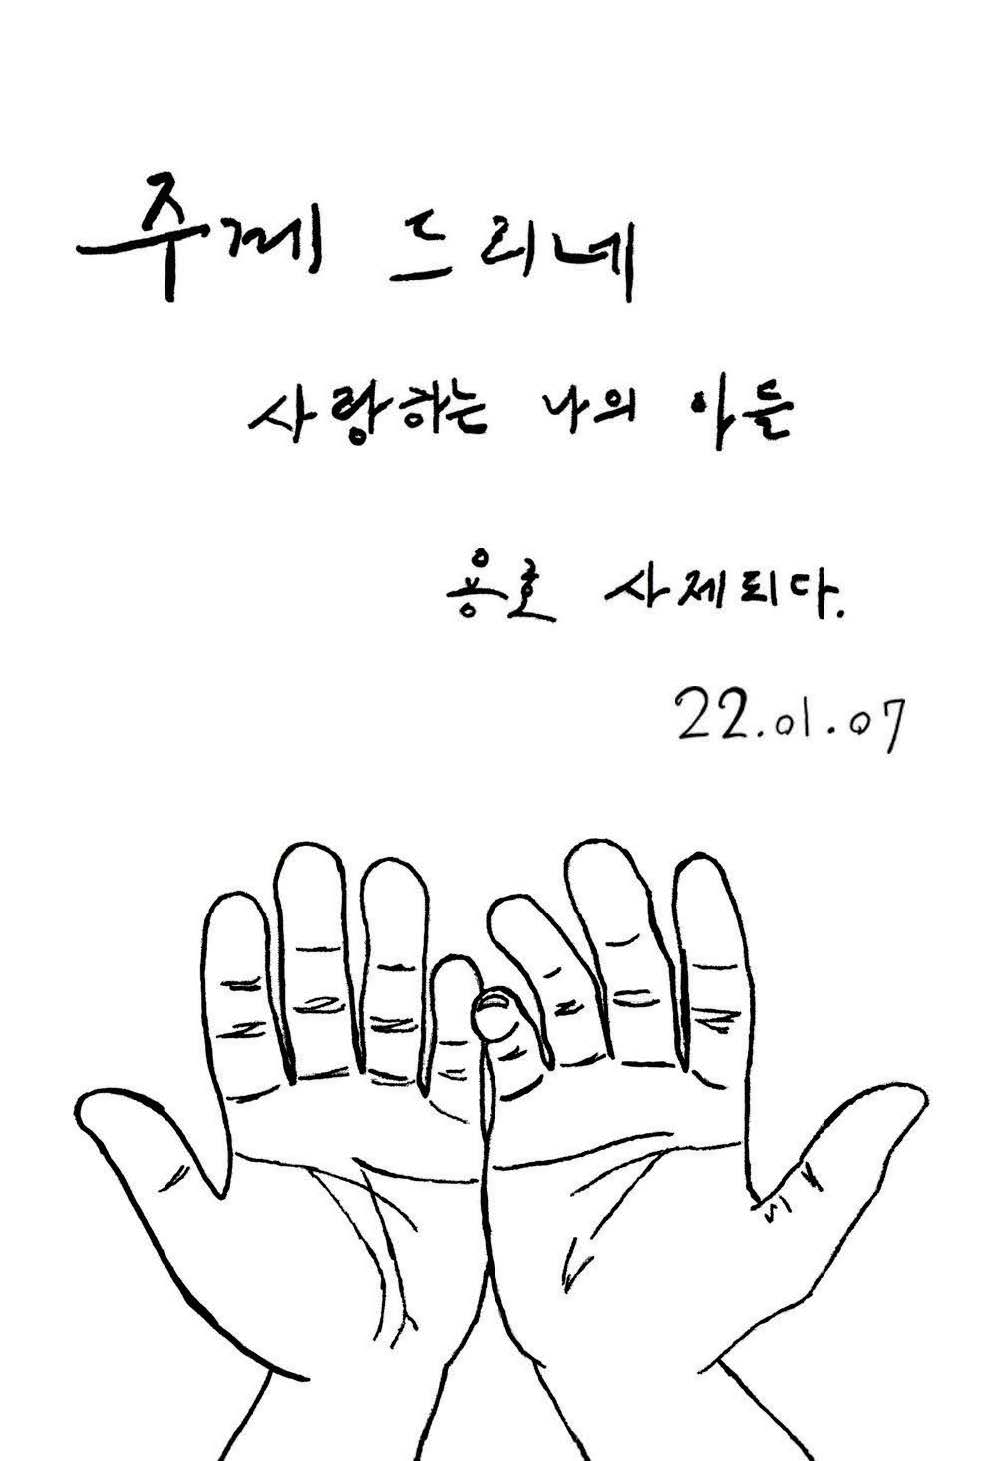 주께 드리네
사랑하는 나의 아들
용호 사제되다.
22.01.07